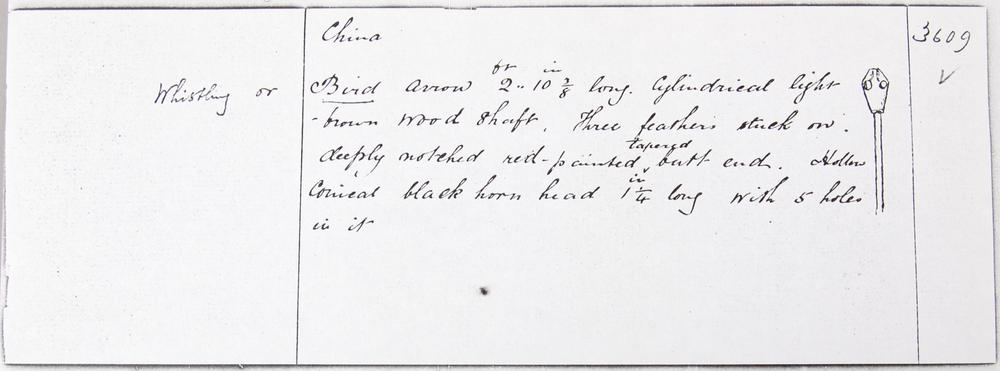 China
3609
Whistling or
Bird arrow 2 ft .. 10 7/8 in long. Cylindrical light
-brown wood shaft. Three feathers stuck on.
deeply notched red-painted tapered butt end. Hollow
Conical black horn head 1 1/4 in long with 5 holes
in it